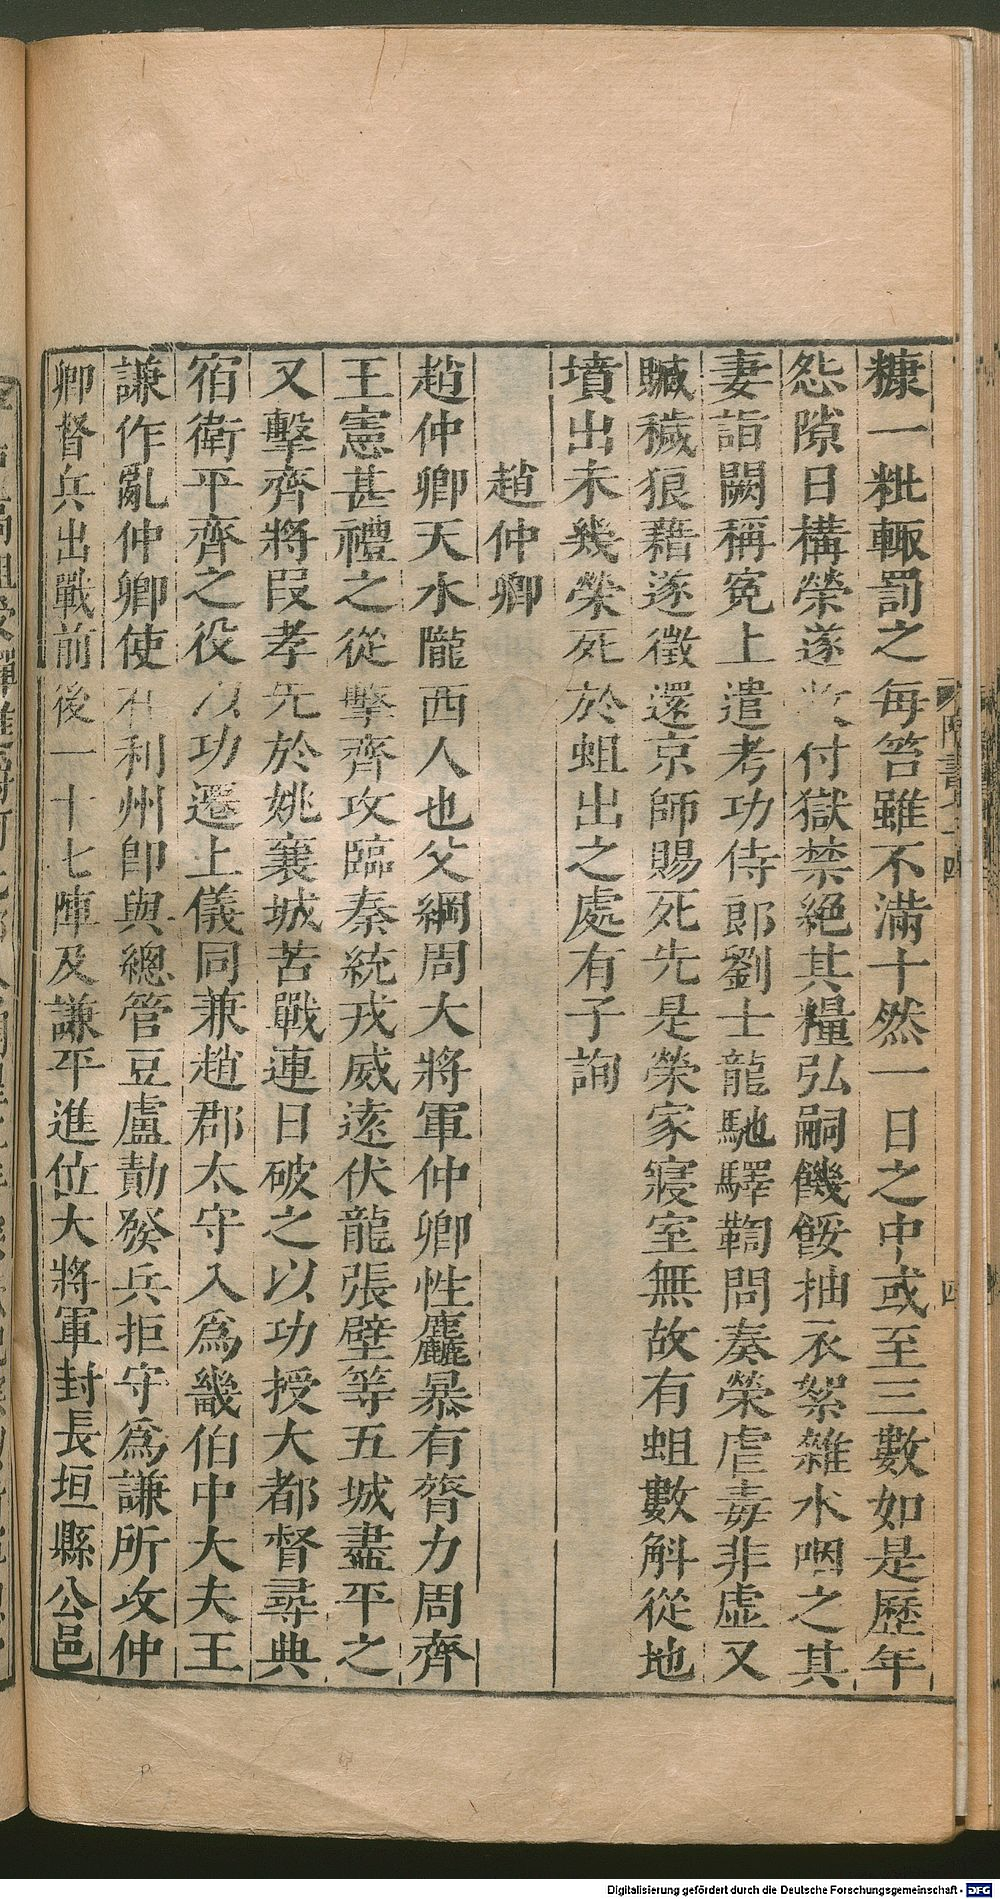 糠一粃輙罰之每笞雖不滿十然一日之中或至三數如是歷年
怨隙日構榮遂收付獄禁絕其糧弘嗣饑餒抽衣絮雜水咽之其
妻詣闕稱冤上遣考功侍郎劉士龍馳驛鞫問奏榮虐毒非虛又
贓穢狼藉遂徵還京師賜死先是榮家寢室無故有蛆數斛從地
墳出未幾榮死於蛆出之處有子詢
趙仲卿
趙仲卿天水隴西人也父綱周大將軍仲卿性麤暴有膂力周齊
王憲甚禮之從擊齊攻臨秦統戎威遠伏龍張壁等五城盡平之
又擊齊將段孝先於姚襄城苦戰連日破之以功授大都督尋典
宿衛平齊之役以功遷上儀同兼趙郡太守入爲畿伯中大夫王
謙作亂仲卿使在利州卽與總管豆盧勣發兵拒守爲謙所攻仲
卿督兵出戰前後一十七陣及謙平進位大將軍封長垣縣公邑
四
Digitalisierung gefördert durch die Deutsche Forschungsgemeinschaft - DFG